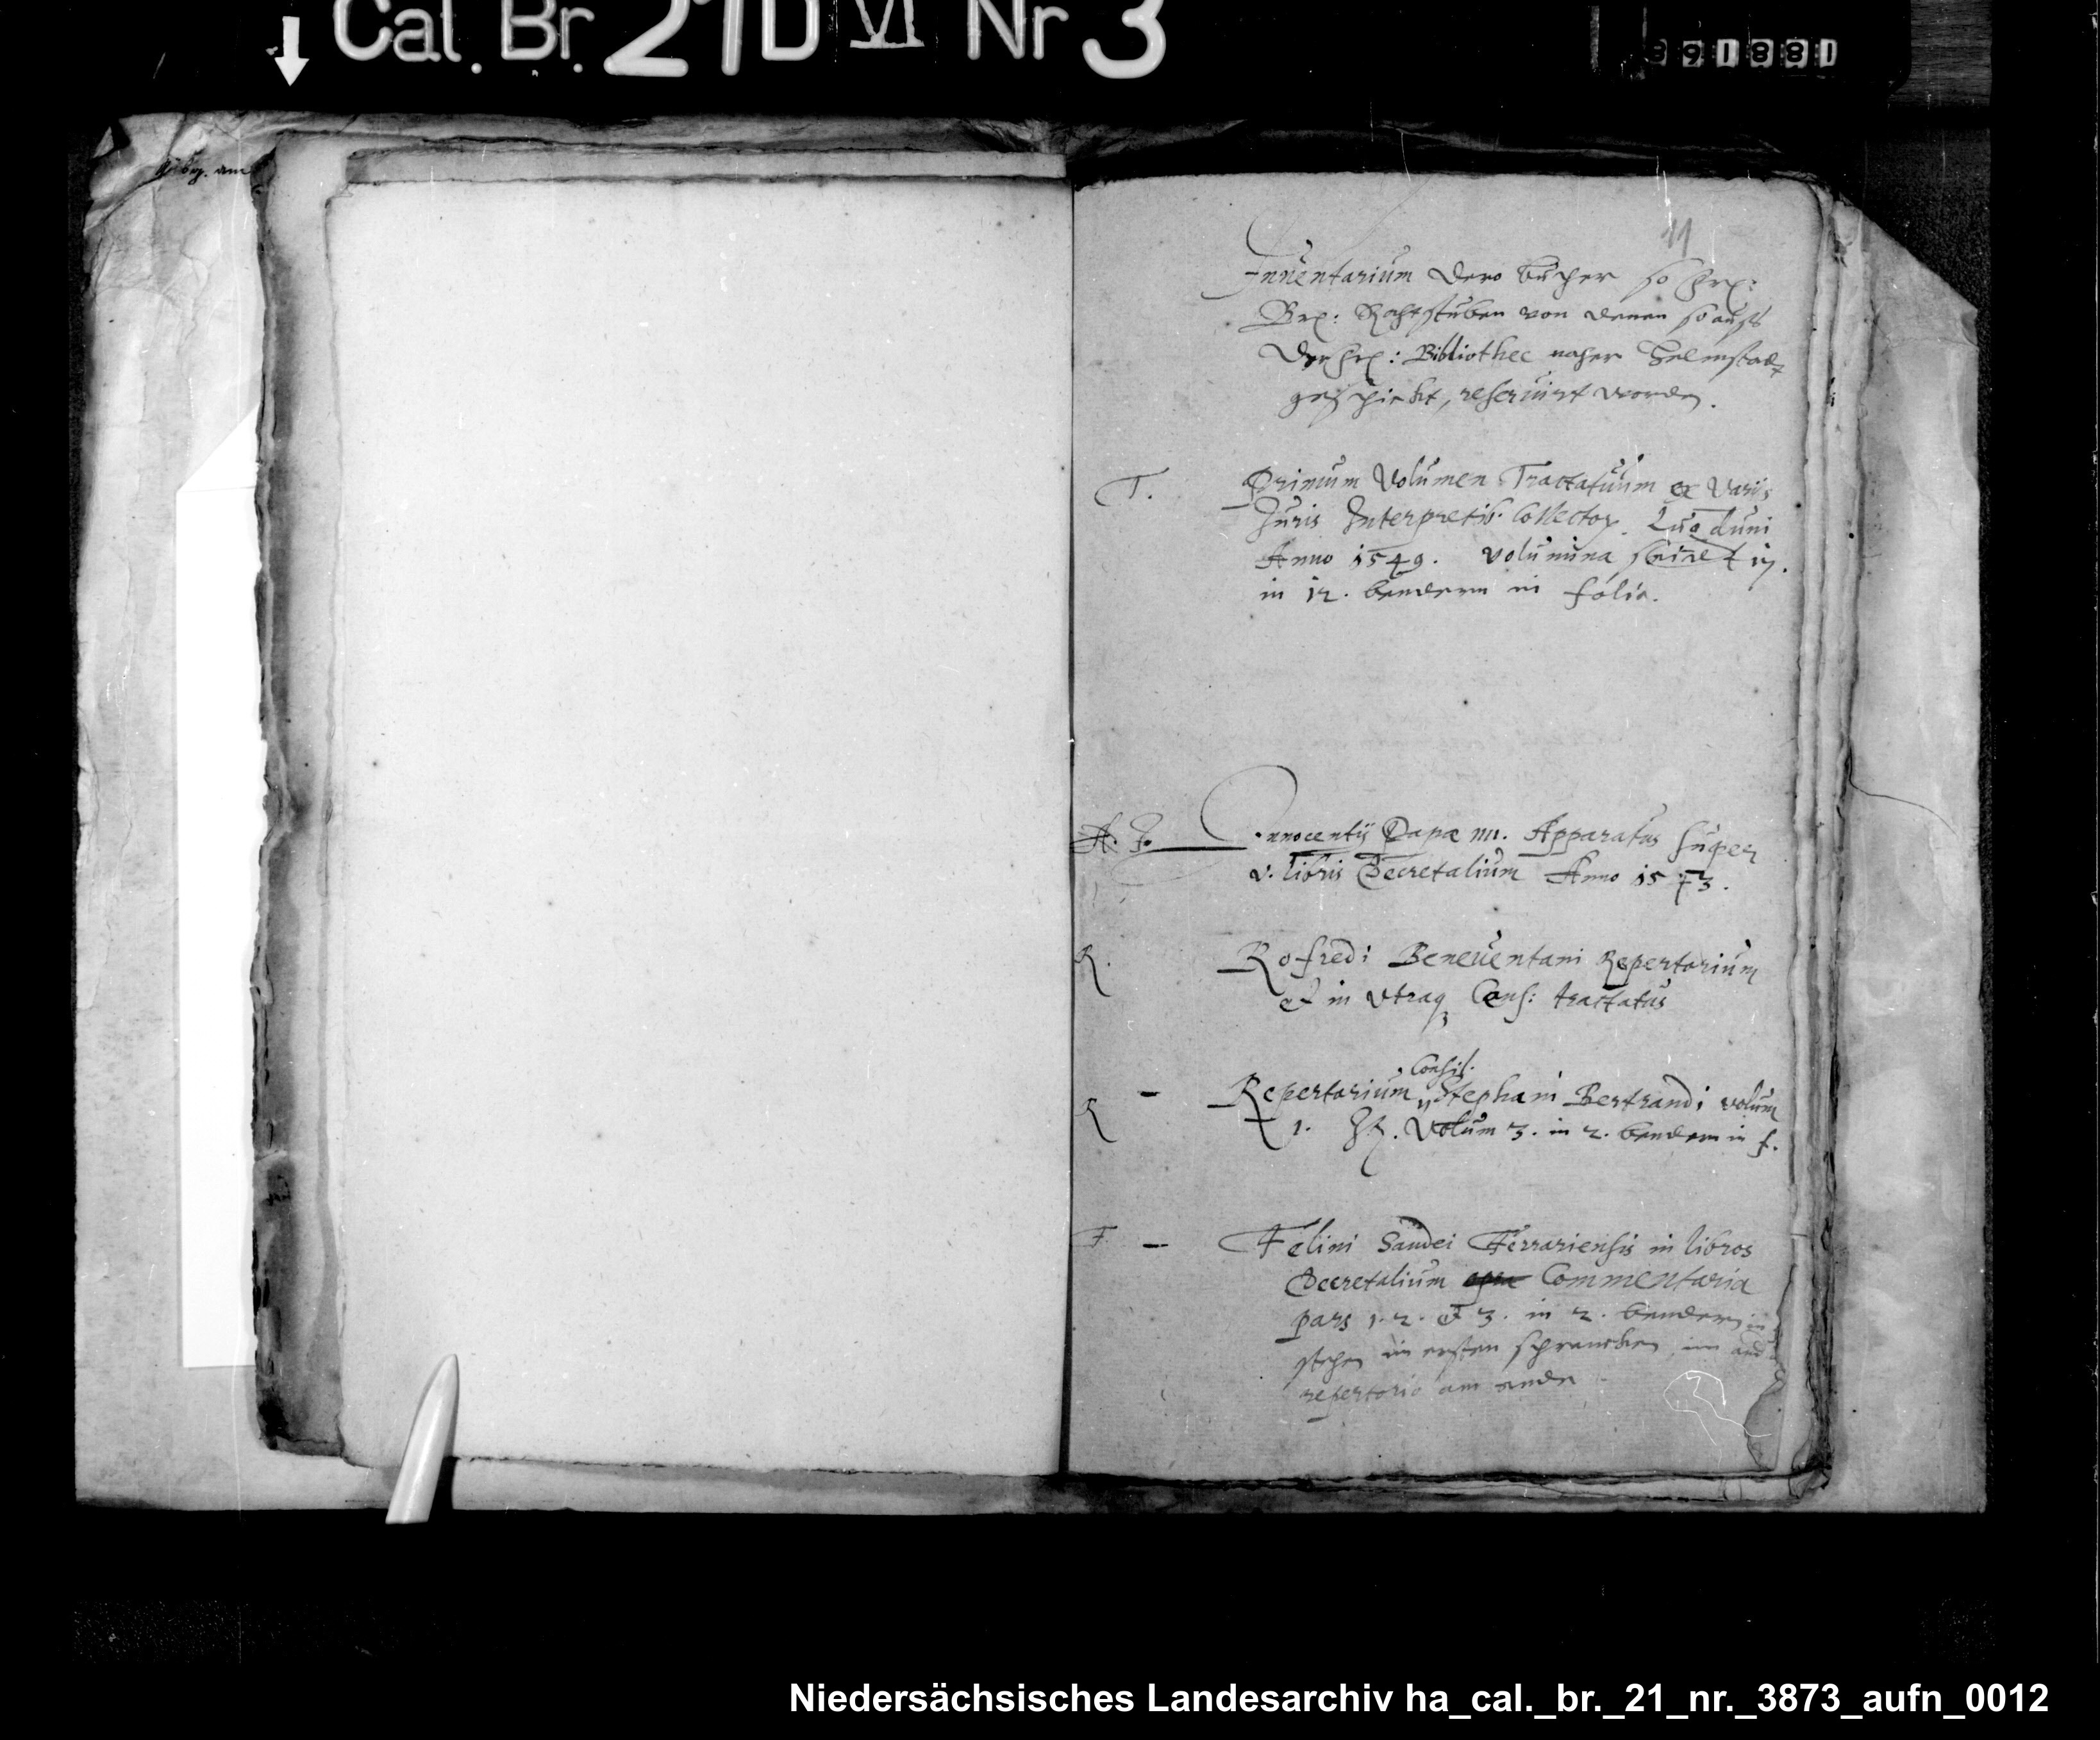 Cal. Br. 21 D VI Nr 3
891881
11
Inuentarium dero bucher so
Rathstuben von denen so auß
Bibliothec naher Helmstadt
geschickt, reseruirt worden.
T. Primum Volumen Tractatuum ex Varijs
Juris Interpretib. Collector. Lugduni
Anno 1549. Volumina
in 12. benden in folio.
A. J. Innocentij Papæ IIII. Apparatus super
v. libris Decretalium Anno 1543.
R. Rofredi Beneuentani Repertarium
et in vtraq Cens: tractatus
Consil.
R - Repertarium Stephani Bertrandi volum
1. It. Volum 3. in 2. bendem in f.
F. - Felini Sandei Ferrariensis in libros
Decretalium Commentaria
pars 1. 2. et 3. in 2. benden in
stehen im ersten schrancken, im
repertorio am ende
Niedersächsisches Landesarchiv ha_cal._br._21_nr._3873_aufn_0012